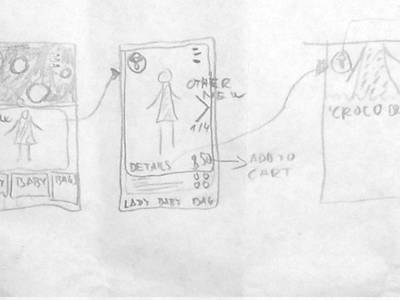 BABY BAG
OTHER
NEW
1/4
DETAILS
$50
ADD TO
CART
LADY BABY BAG
"CROCO